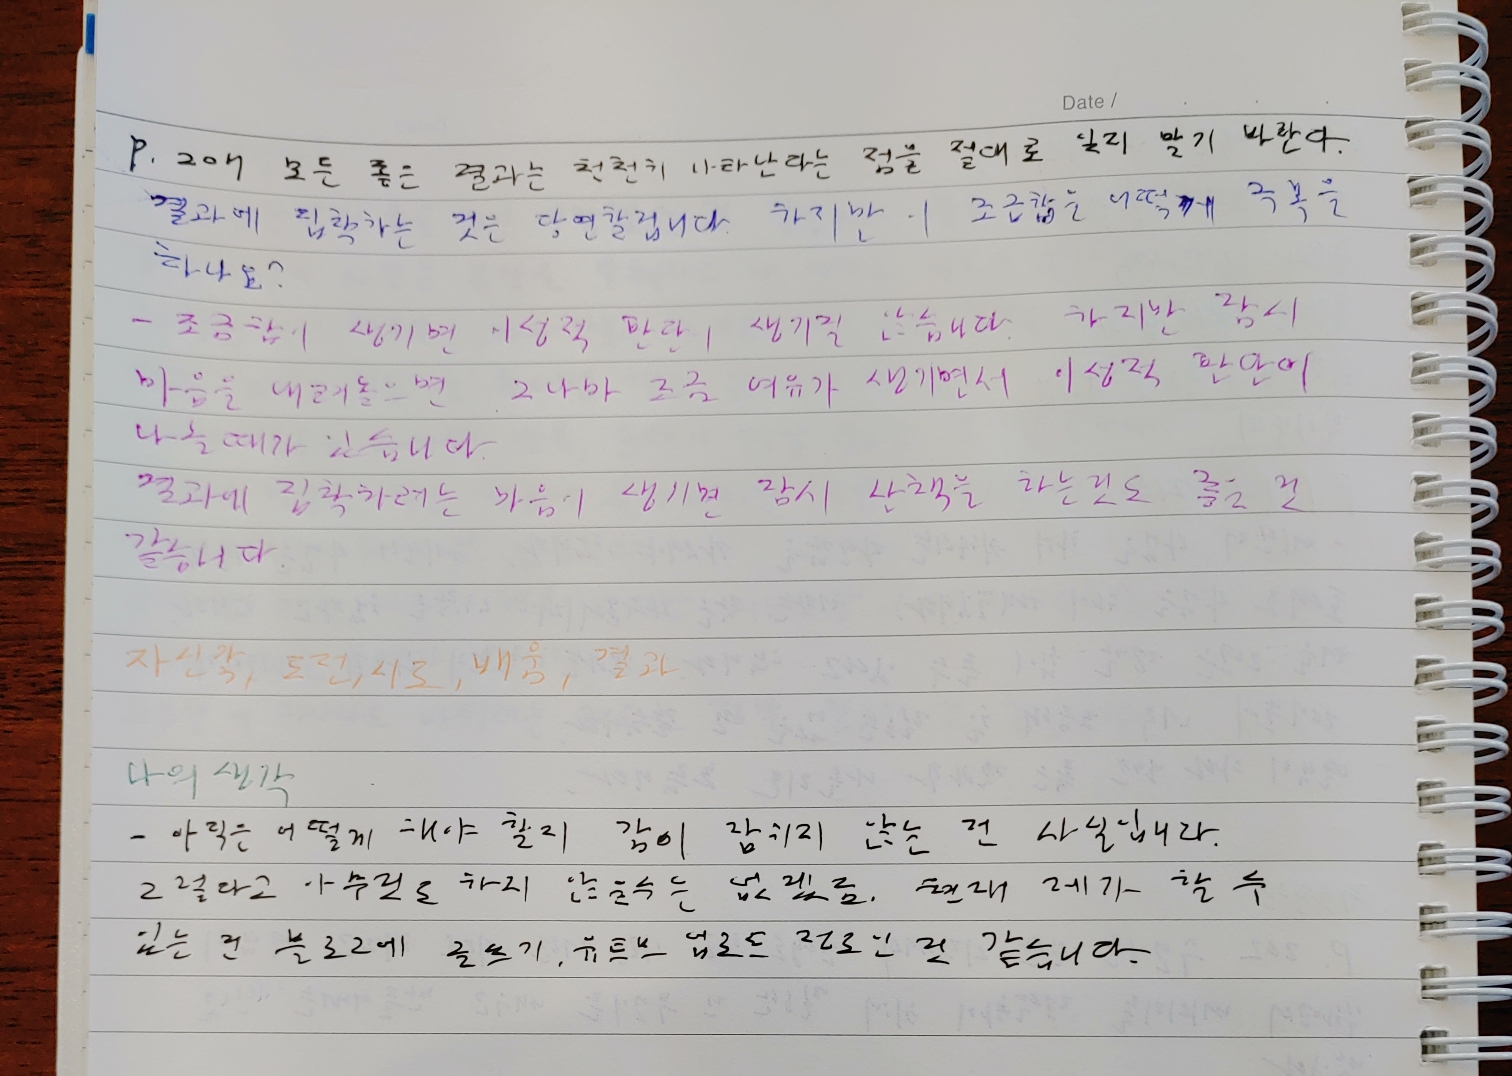 Date /
P. 204 모든 좋은 결과는 천천히 나타난다는 점을 절대로 잊지 말기 바란다.
결과에 집착하는 것은 당연할겁니다. 하지만 이 조급함을 어떻게 극복을
하나요?
- 조급함이 생기면 이성적 판단이 생기질 않습니다. 하지만 잠시
마음을 내려놓으면 그나마 조금 여유가 생기면서 이성적 판단이
나올때가 있습니다.
결과에 집착하려는 마음이 생기면 잠시 산책을 하는것도 좋은 것
같습니다
자신감, 도전, 시도, 배움, 결과
나의 생각
- 아직은 어떻게 해야 할지 감이 잡히지 않는 건 사실입니다.
그렇다고 아무것도 하지 않을수는 없겠죠. 현재 제가 할 수
있는 건 블로그에 글쓰기, 유튜브 업로드 전로인것 같습니다.